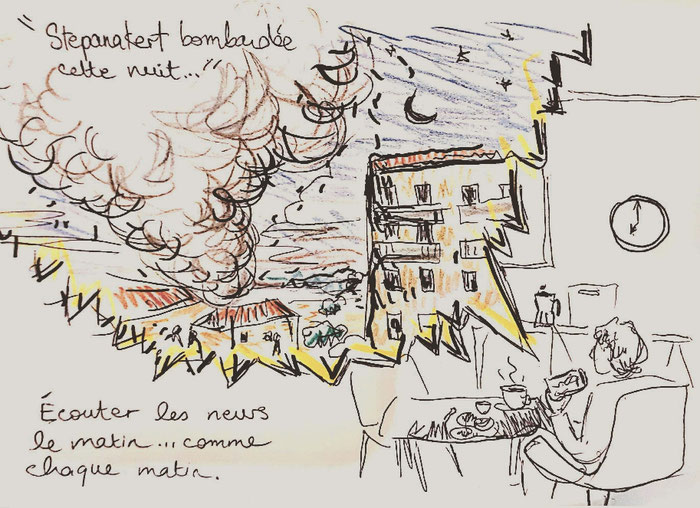 "Stepanakert bombardée
cette nuit..."
Écouter les news
le matin... comme
chaque matin.